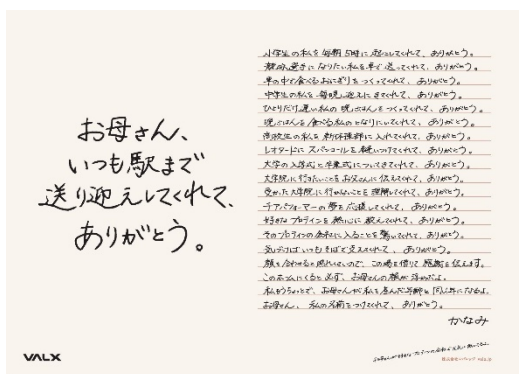 お母さん、
いつも駅まで
送り迎えしてくれて、
ありがとう。
小学生の私を毎朝5時に起こしてくれて、ありがとう。
選手になりたい私を車で送ってくれて、ありがとう。
車の中で食べるおにぎりをつくってくれて、ありがとう。
中学生の私を毎晩迎えにきてくれて、ありがとう。
ひとりだけ遅い私の晩ごはんをつくってくれて、ありがとう。
晩ごはんを食べる私のとなりにいてくれて、ありがとう。
高校生の私を新体操部に入れてくれて、ありがとう。
レオタードにスパンコールを縫いつけてくれて、ありがとう。
大学の入学式と卒業式についてきてくれて、ありがとう。
大学院に行きたいことをお父さんに伝えてくれて、ありがとう。
受かった大学院に行かないことを理解してくれて、ありがとう。
チアパフォーマーの夢を応援してくれて、ありがとう。
好きなプロテインを熱心に飲んでくれて、ありがとう。
そのプロテインの会社に入ることを驚いてくれて、ありがとう。
気づけばいつもそばで支えてくれて、ありがとう。
顔を合わせると照れてしまうので、この場を借りて感謝を伝えます。
このホームにくると必ず、お母さんの顔が浮かぶよ。
私もうちょっとで、お母さんが私を産んだ年齢と同い年になるよ。
お母さん、私の名前をつけてくれて、ありがとう。
かなみ
VALX